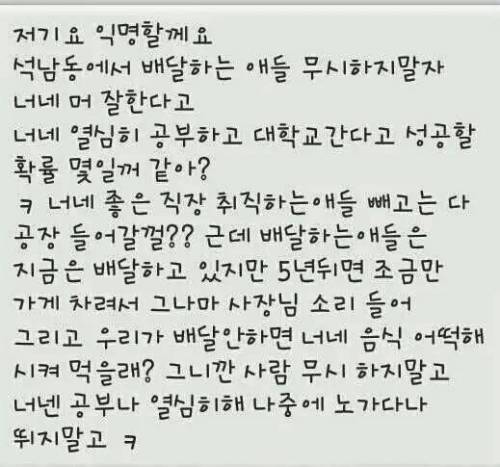 저기요 익명할께요
석남동에서 배달하는 애들 무시하지말자
너네 머 잘한다고
너네 열심히 공부하고 대학교간다고 성공할
확률 몇일꺼 같아?
ㅋ 너네 좋은 직장 취직하는애들 빼고는 다
공장 들어갈껄?? 근데 배달하는애들은
지금은 배달하고 있지만 5년뒤면 조금만
가게 차려서 그나마 사장님 소리 들어
그리고 우리가 배달안하면 너네 음식 어떡해
시켜 먹을래? 그니깐 사람 무시 하지말고
너넨 공부나 열심히해 나중에 노가다나
뛰지말고 ㅋ